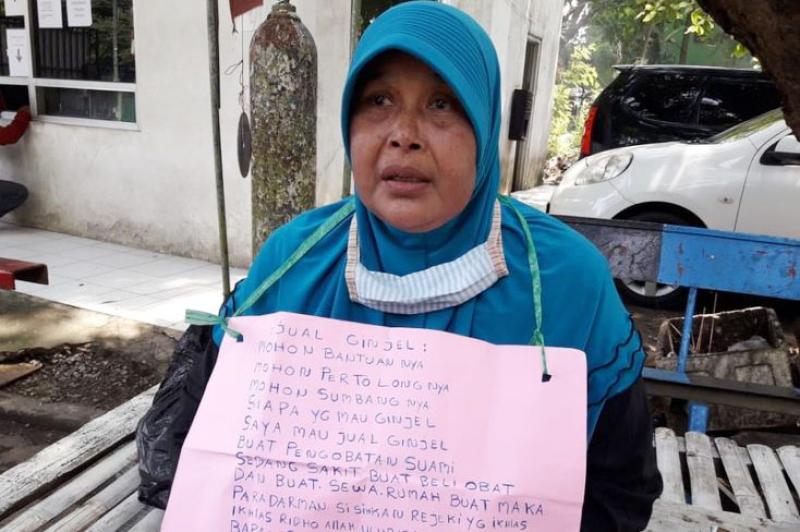 JUAL GINJEL :
MOHON BANTUAN NYA
MOHON PERTOLONG NYA
MOHON SUMBANG NYA
SIAPA YG MAU GINJEL
SAYA MAU JUAL GINJEL
BUAT PENGOBATAN SUAMI
SEDANG SAKIT BUAT BELI OBAT
DAN BUAT. SEWA. RUMAH BUAT MAKA
PARA DARMAN. SISIHKAN REJEKI YG IKHLAS
IKHLAS RIDHO ALLAH